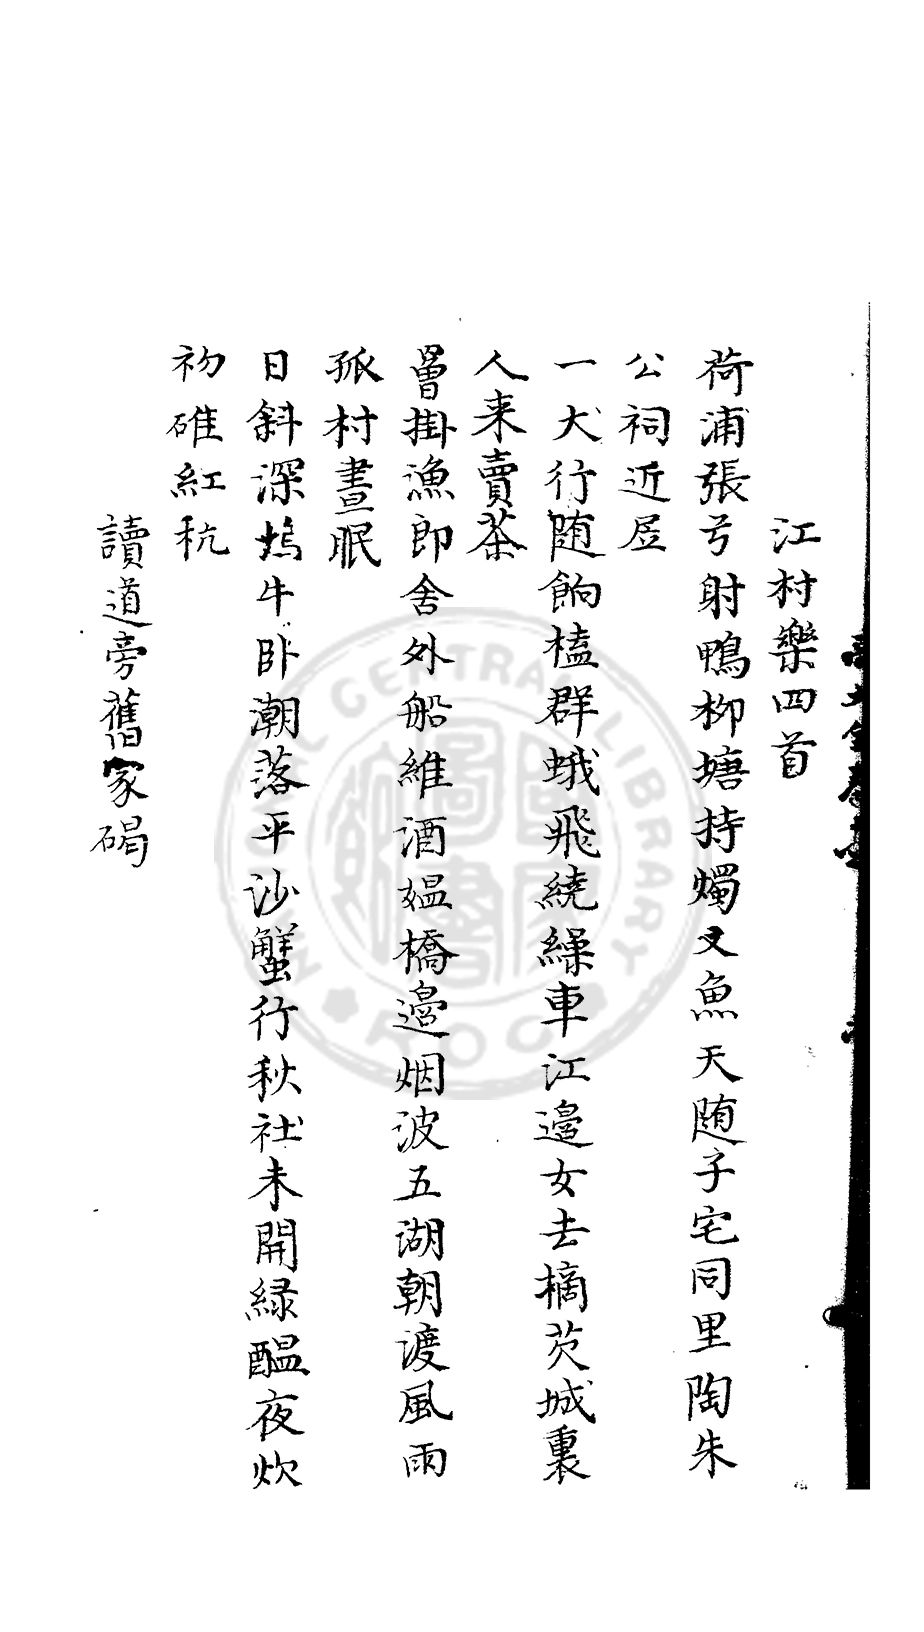 江村樂四首
荷浦張弓射鴨柳塘持燭叉魚天随子宅同里陶朱
公祠近居
一犬行随餉榼群蛾飛繞繰車江邉女去摘茨城裏
人来賣茶
罾掛漁郎舍外船維酒媪橋邉烟波五湖朝渡風雨
孤村晝眠
日斜深塢牛卧潮落平沙蟹行秋社未開緑醖夜炊
初碓紅秔
讀道旁舊冢碣
NATIONAL CENTRAL LIBRARY
ROC